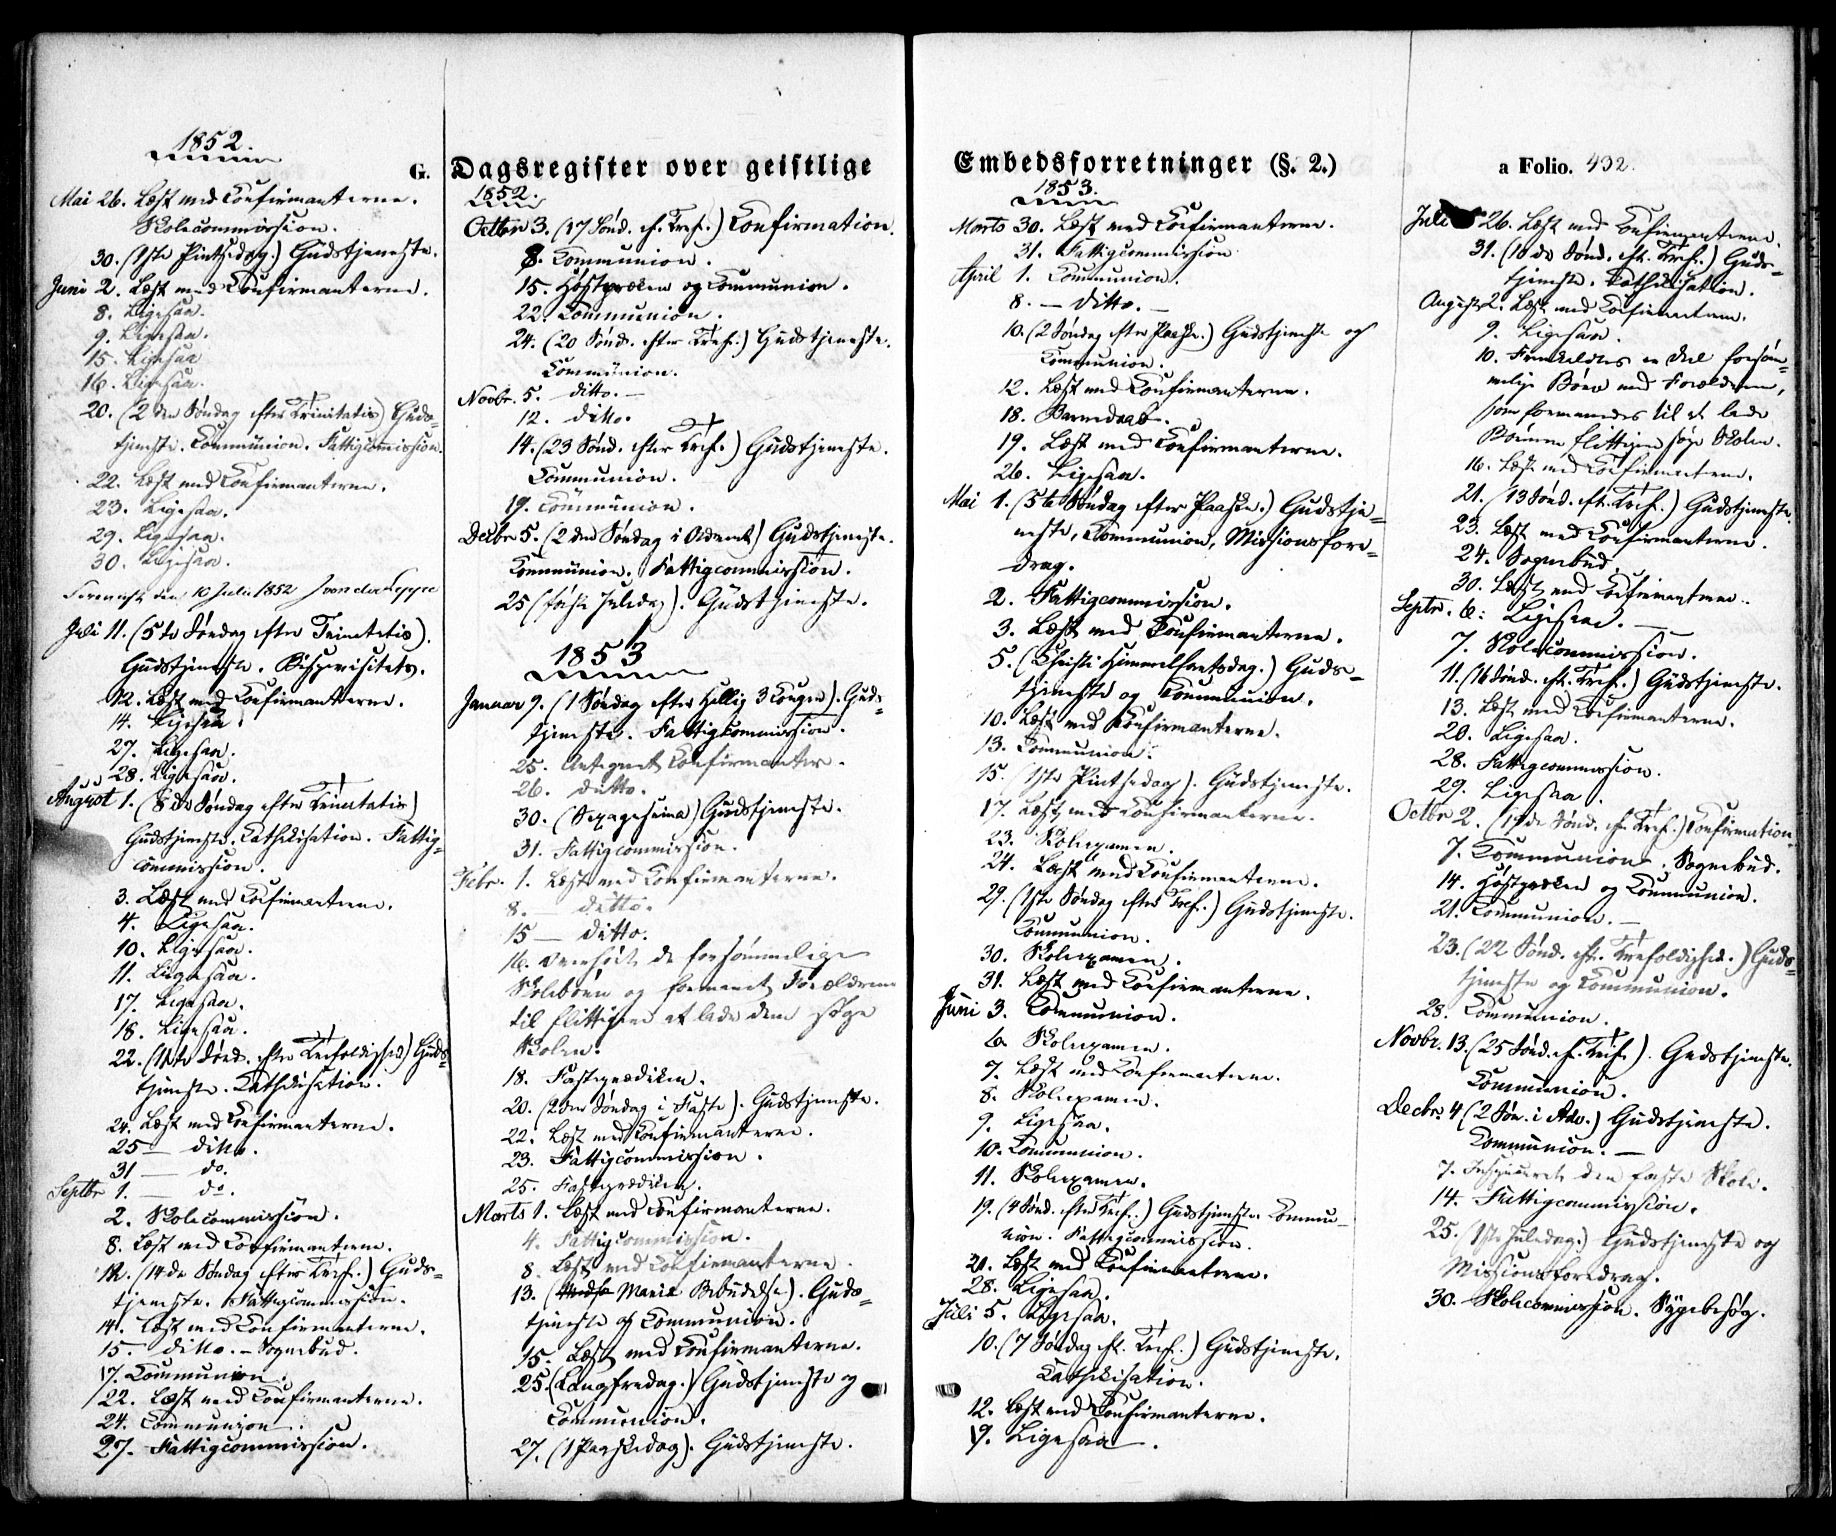 G. Dagsregister over geistlige Embedsforretninger (§. 2.) a Folio. 432.
1852.
Mai 26. Læst med Confirmanterne.
Skolecommission.
30. (1ste Pintsedag.) Gudstjeneste.
Juni 2. Læst med Confirmanterne.
8. Ligesaa.
9. Ligesaa.
15. Ligesaa
16. Ligesaa.
20. (2den Søndag efter Trinitatis) Guds-
tjeneste. Communion. Fattigcommission.
22. Læst med Confirmanterne.
23. Ligesaa.
29. Ligesaa.
30. Ligesaa.
den 10 Juli 1852
Juli 11. (5te Søndag efter Trinitatis).
Gudstjeneste. Bispevisitats.
12. Læst med Confirmanterne.
14. Ligesaa.
27. Ligesaa.
28. Ligesaa.
August 1. (8de Søndag efter Trinitatis)
Gudstjeneste. Cathekisation. Fattig-
commission.
3. Læst med Confirmanterne.
4. Ligesaa.
10. Ligesaa.
11. Ligesaa.
17. Ligesaa.
18. Ligesaa.
22. (11te Sønd. efter Trefoldighed) Guds-
tjeneste. Cathekisation.
24. Læst med Confirmanterne.
25 — ditto.
31 — do.
Septbr 1. — do.
2. Skolecommission.
8. Læst med Confirmanterne.
12. (14de Søndag efter Tref.) Guds-
tjeneste. Fattigcommission.
14. Læst med Confirmanterne.
15. ditto. — Sognebud.
17. Communion.
22. Læst med Confirmanterne.
24. Communion.
27. Fattigcommission.
1852.
Octbr 3. (17 Sønd. ef. Tref.) Confirmation.
8. Communion.
15. Høstprœken og Communion.
22. Communion.
24. (20 Sønd. efter Tref.) Gudstjeneste.
Communion.
Novbr. 5. ditto. —
12. ditto.
14. (23 Sønd. efter Tref.) Gudstjeneste.
Communion.
19. Communion.
Decbr 5. (2den Søndag i Advent) Gudstjeneste.
Communion. Fattigcommission.
25 (første Juledag). Gudstjeneste.
1853
Januar 9. (1 Søndag efter Hellig 3 Konger). Guds-
tjeneste. Fattigcommission.
25. Antegnet Confirmanter.
26. ditto.
30. (Sexagesima) Gudstjeneste.
31. Fattigcommission.
Febr. 1. Læst med Confirmanterne.
8. — ditto.
15 — ditto.
16. Overhørt de forsømmelige
Skolebørn og formanet Forældrene
til flittigere at lade dem søge
Skolen.
18. Fasteprædiken.
20. (2den Søndag i Faste). Gudstjeneste.
22. Læst med Confirmanterne.
23. Fattigcommission.
25. Fasteprædiken.
Marts 1. Læst med Confirmanterne.
4. Fattigcommission.
8. Læst med Confirmanterne.
13. (Maria Bebudelse). Guds-
tjeneste og Communion.
15. Læst med Confirmanterne.
25. (Langfredag.) Gudstjeneste og
Communion.
27. (1 Paaskedag). Gudstjeneste.
1853.
Marts 30. Læst med Confirmanterne.
31. Fattigcommission
April 1. Communion.
8. — ditto. —
10. (2 Søndag efter Paaske.) Gudstjeneste og
Communion.
12. Læst med Confirmanterne.
18. Barnedaab.
19. Læst med Confirmanterne.
26. Ligesaa.
Mai 1. (5te Søndag efter Paaske.) Gudstje-
neste, Communion, Missionsfore-
drag.
2. Fattigcommission.
3. Læst med Confirmanterne.
5. (Christi Himmelfartsdag.) Guds-
tjeneste og Communion.
10. Læst med Confirmanterne.
13. Communion.
15. (1ste Pintsedag). Gudstjeneste.
17. Læst med Confirmanterne.
23. Skoleexamen.
24. Læst med Confirmanterne.
29. (1ste Søndag efter Tref.) Gudstjeneste.
Communion.
30. Skoleexamen.
31. Læst med Confirmanterne.
Juni 3. Communion.
6. Skoleexamen.
7. Læst med Confirmanterne.
8. Skoleexamen.
9. Ligesaa.
10. Communion.
11. Skoleexamen.
19. (4 Sønd. efter Tref.) Gudstjeneste. Commu-
nion. Fattigcommission.
21. Læst med Confirmanterne.
28. Ligesaa.
Juli 5. Ligesaa.
10. (7 Søndag eft. Tref.) Gudstjeneste.
Cathekisation.
12. Læst med Confirmanterne.
19. Ligesaa.
Juli 26. Læst med Confirmanterne.
31. (10de Sønd. eft. Tref.) Guds-
tjeneste. Cathekisation.
August 2. Læst med Confirmanterne.
9. Ligesaa.
10. Fremkaldtes en Deel forsøm-
melige Børn med Forældrene,
som formanedes til at lade
Børnene flittigen søge Skolen.
16. Læst med Confirmanterne.
21. (13 Sønd. eft. Tref.) Gudstjeneste.
23. Læst med Confirmanterne.
24. Sognebud.
30. Læst med Confirmanterne.
Septbr. 6. Ligesaa. —
7. Skolecommission.
11. (16 Sønd. eft. Tref.) Gudstjeneste.
13. Læst med Confirmanterne.
20. Ligesaa.
28. Fattigcommission.
29. Ligesaa.
Octbr 2. (19de Sønd. ef. Tref.) Confirmation.
7. Communion. Sognebud.
14. Høstprœken og Communion.
21. Communion. —
23. (22 Sønd. eft. Trefoldighed.) Guds-
tjeneste og Communion.
28. Communion.
Novbr. 13. (25 Sønd. ef. Tref.). Gudstjeneste.
Communion.
Decbr. 4 (2 Søn. i Adv.) Gudstjeneste.
Communion. —
7. Inspiceret den faste Skole.
14. Fattigcommission.
25. (1ste Juledag.) Gudstjeneste og
Missionsforedrag.
30. Skolecommission. Sygebesøg.